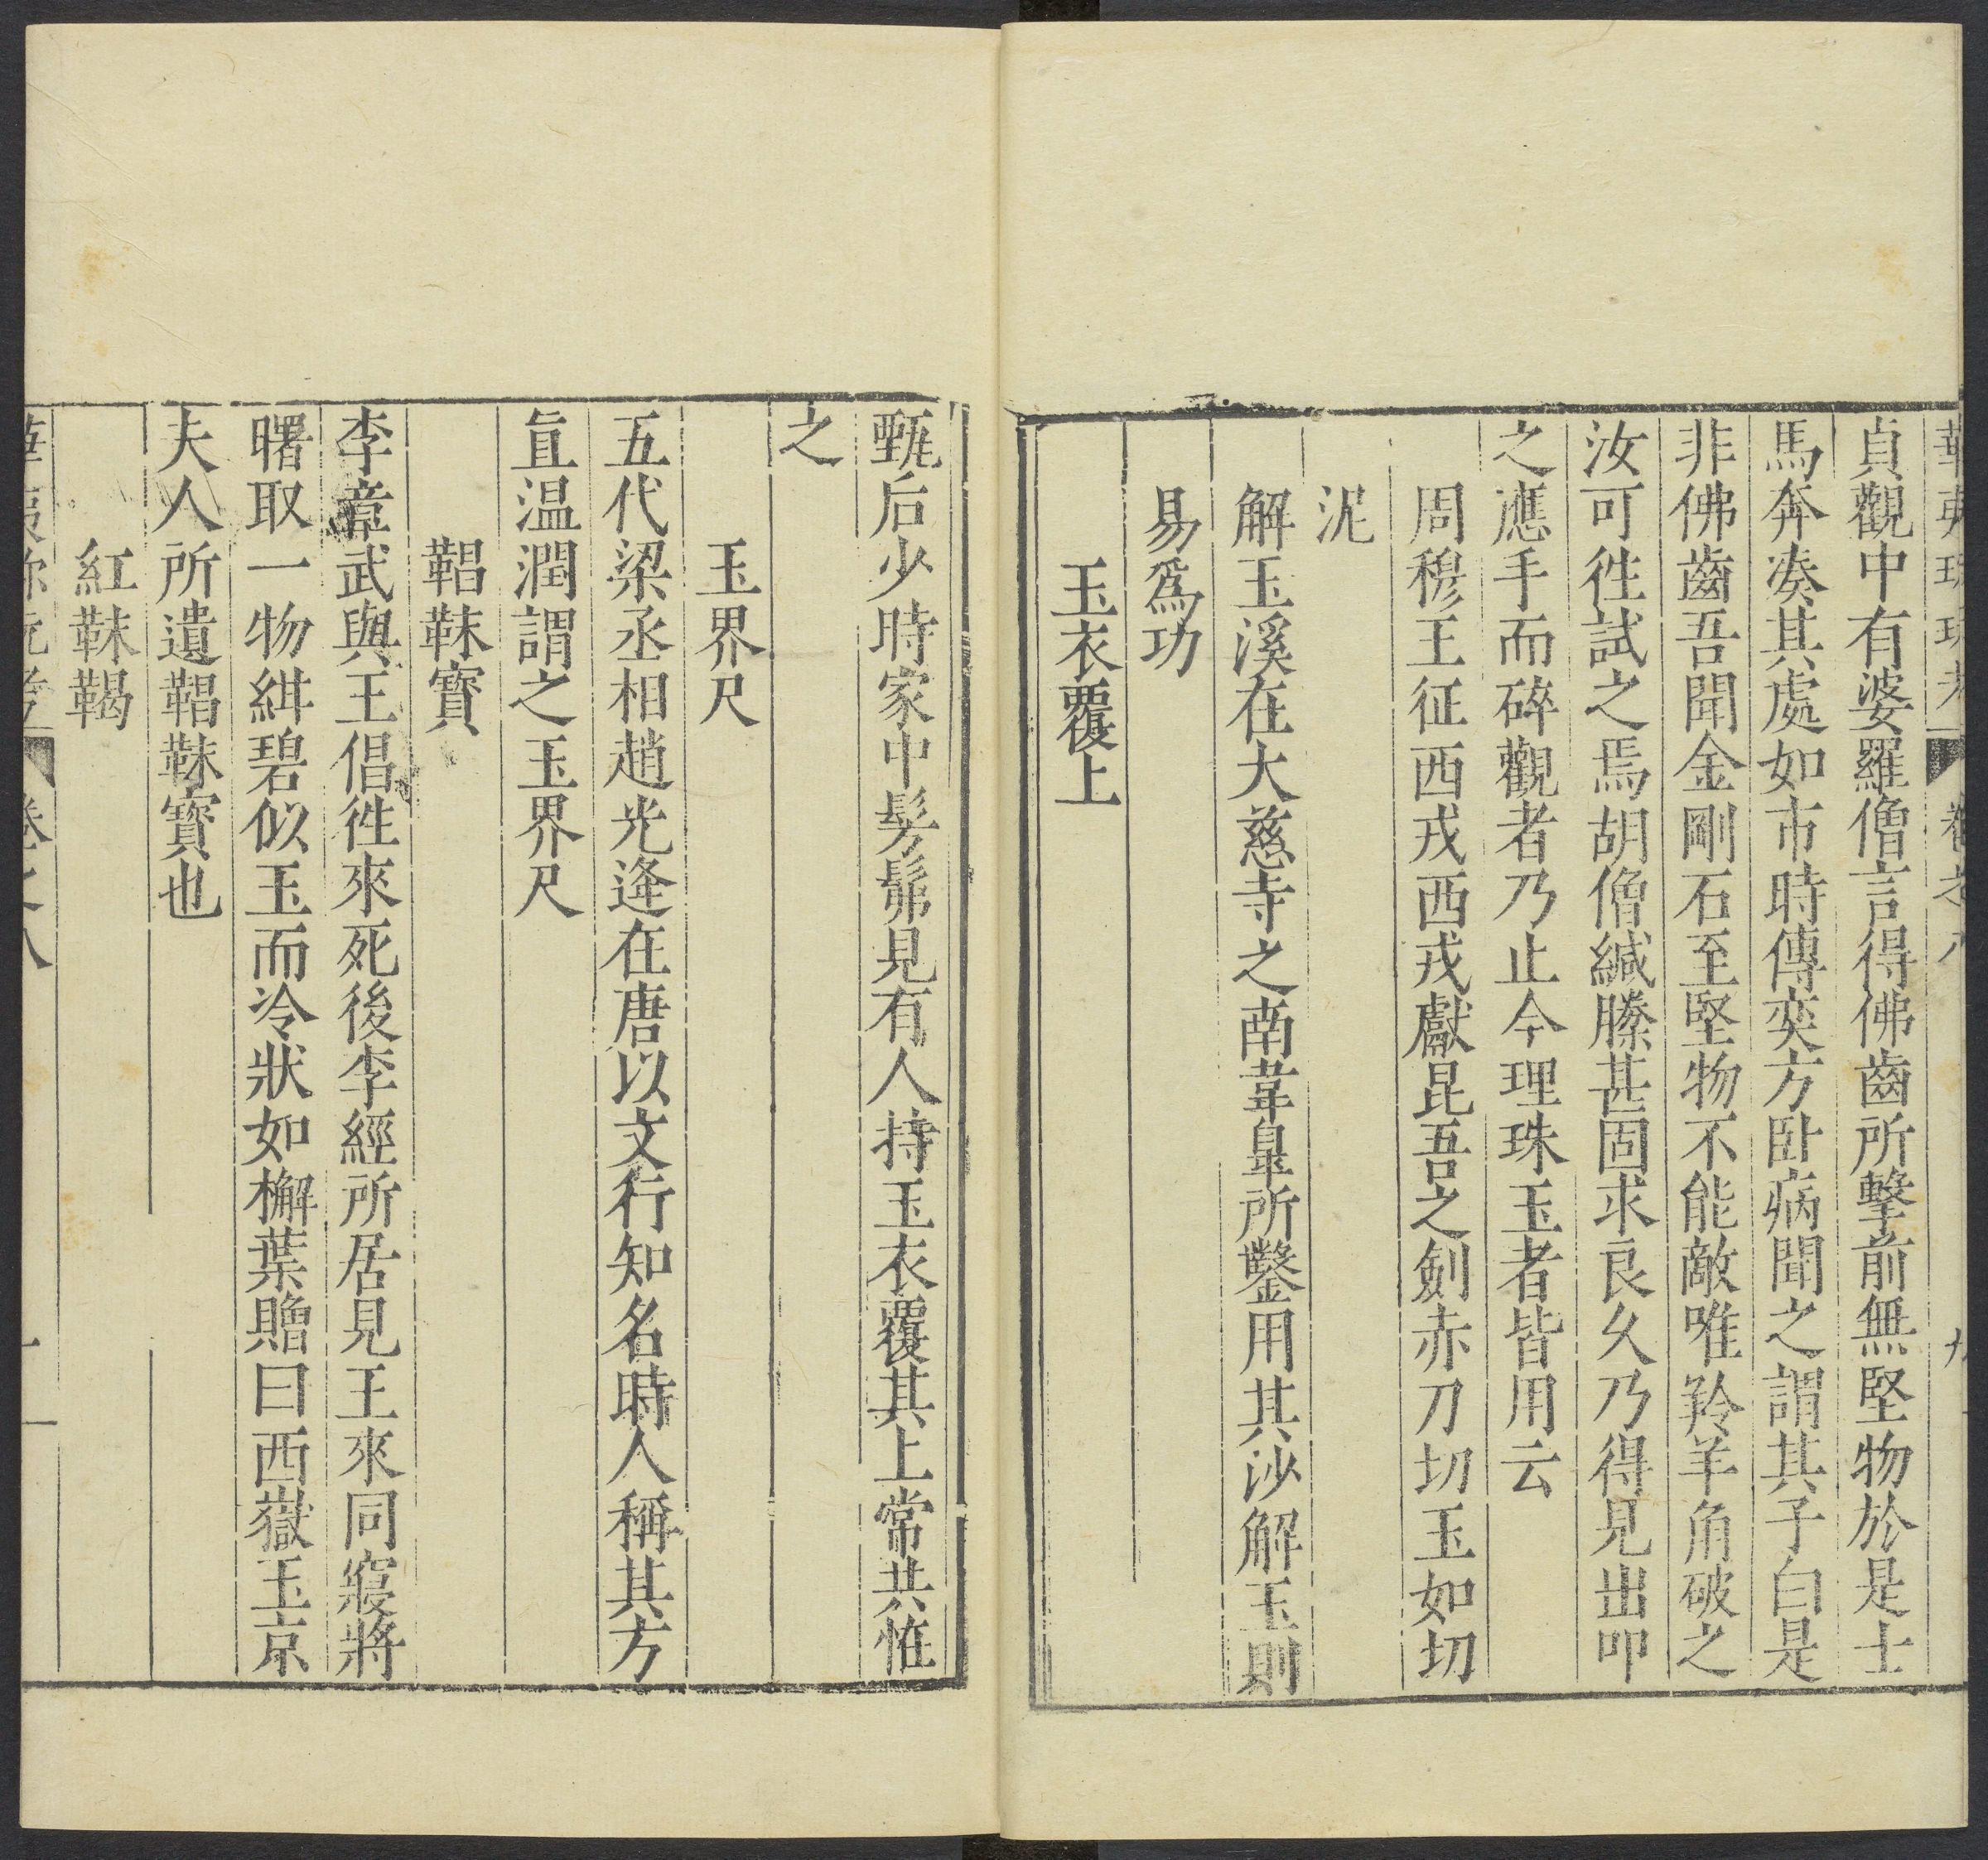 華夷珍玩考 卷之八 九
貞觀中有婆羅僧言得佛齒所擊前無堅物於是士
馬奔凑其處如市時傳奕方卧病聞之謂其子曰是
非佛齒吾聞金剛石至堅物不能敵唯羚羊角破之
汝可徃試之焉胡僧緘縢甚固求良久乃得見出叩
之應手而碎觀者乃止今理珠玉者皆用云
周穆王征西戎西戎獻昆吾之劍赤刀切玉如切
泥
解玉溪在大慈寺之南韋臯所鑿用其沙解玉則
易爲功
玉衣覆上
甄后少時家中髣髴見有人持玉衣覆其上常共恠
之
玉界尺
五代梁丞相趙光逢在唐以文行知名時人稱其方
直温潤謂之玉界尺
鞨靺寳
李章武與王倡徃來死後李經所居見王來同寢將
曙取一物紺碧似玉而冷狀如檞葉贈曰西嶽玉京
夫人所遺鞨靺寳也
紅靺鞨
華夷珍玩考 卷之八